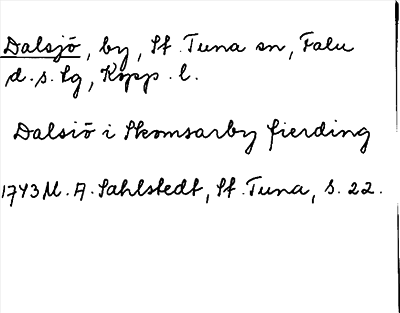 Dalsjö, by, St. Tuna sn, Falu
d.s. lg, Kopp. l.
Dalsiö i Skomsarby fierding
1743 M. A. Sahlstedt, St. Tuna, s. 22.